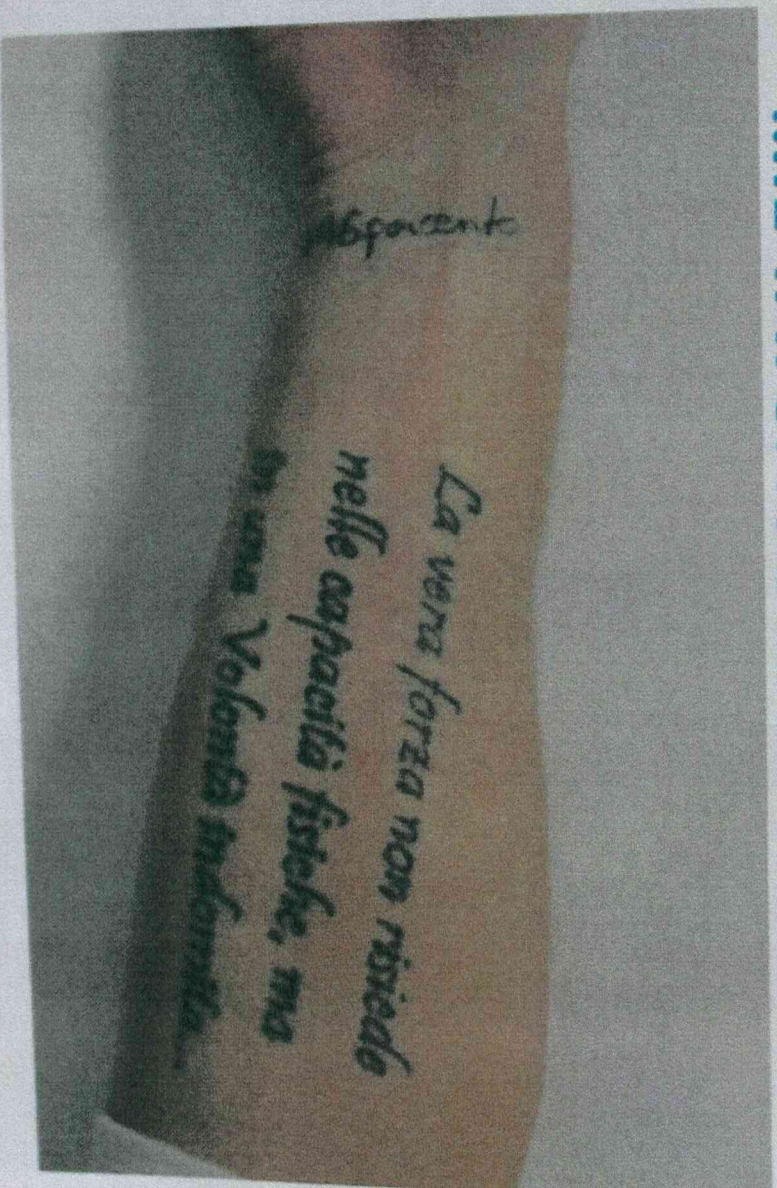 La vera forza non risiede
nelle capacità fisiche, ma
in una Volontà indomita...